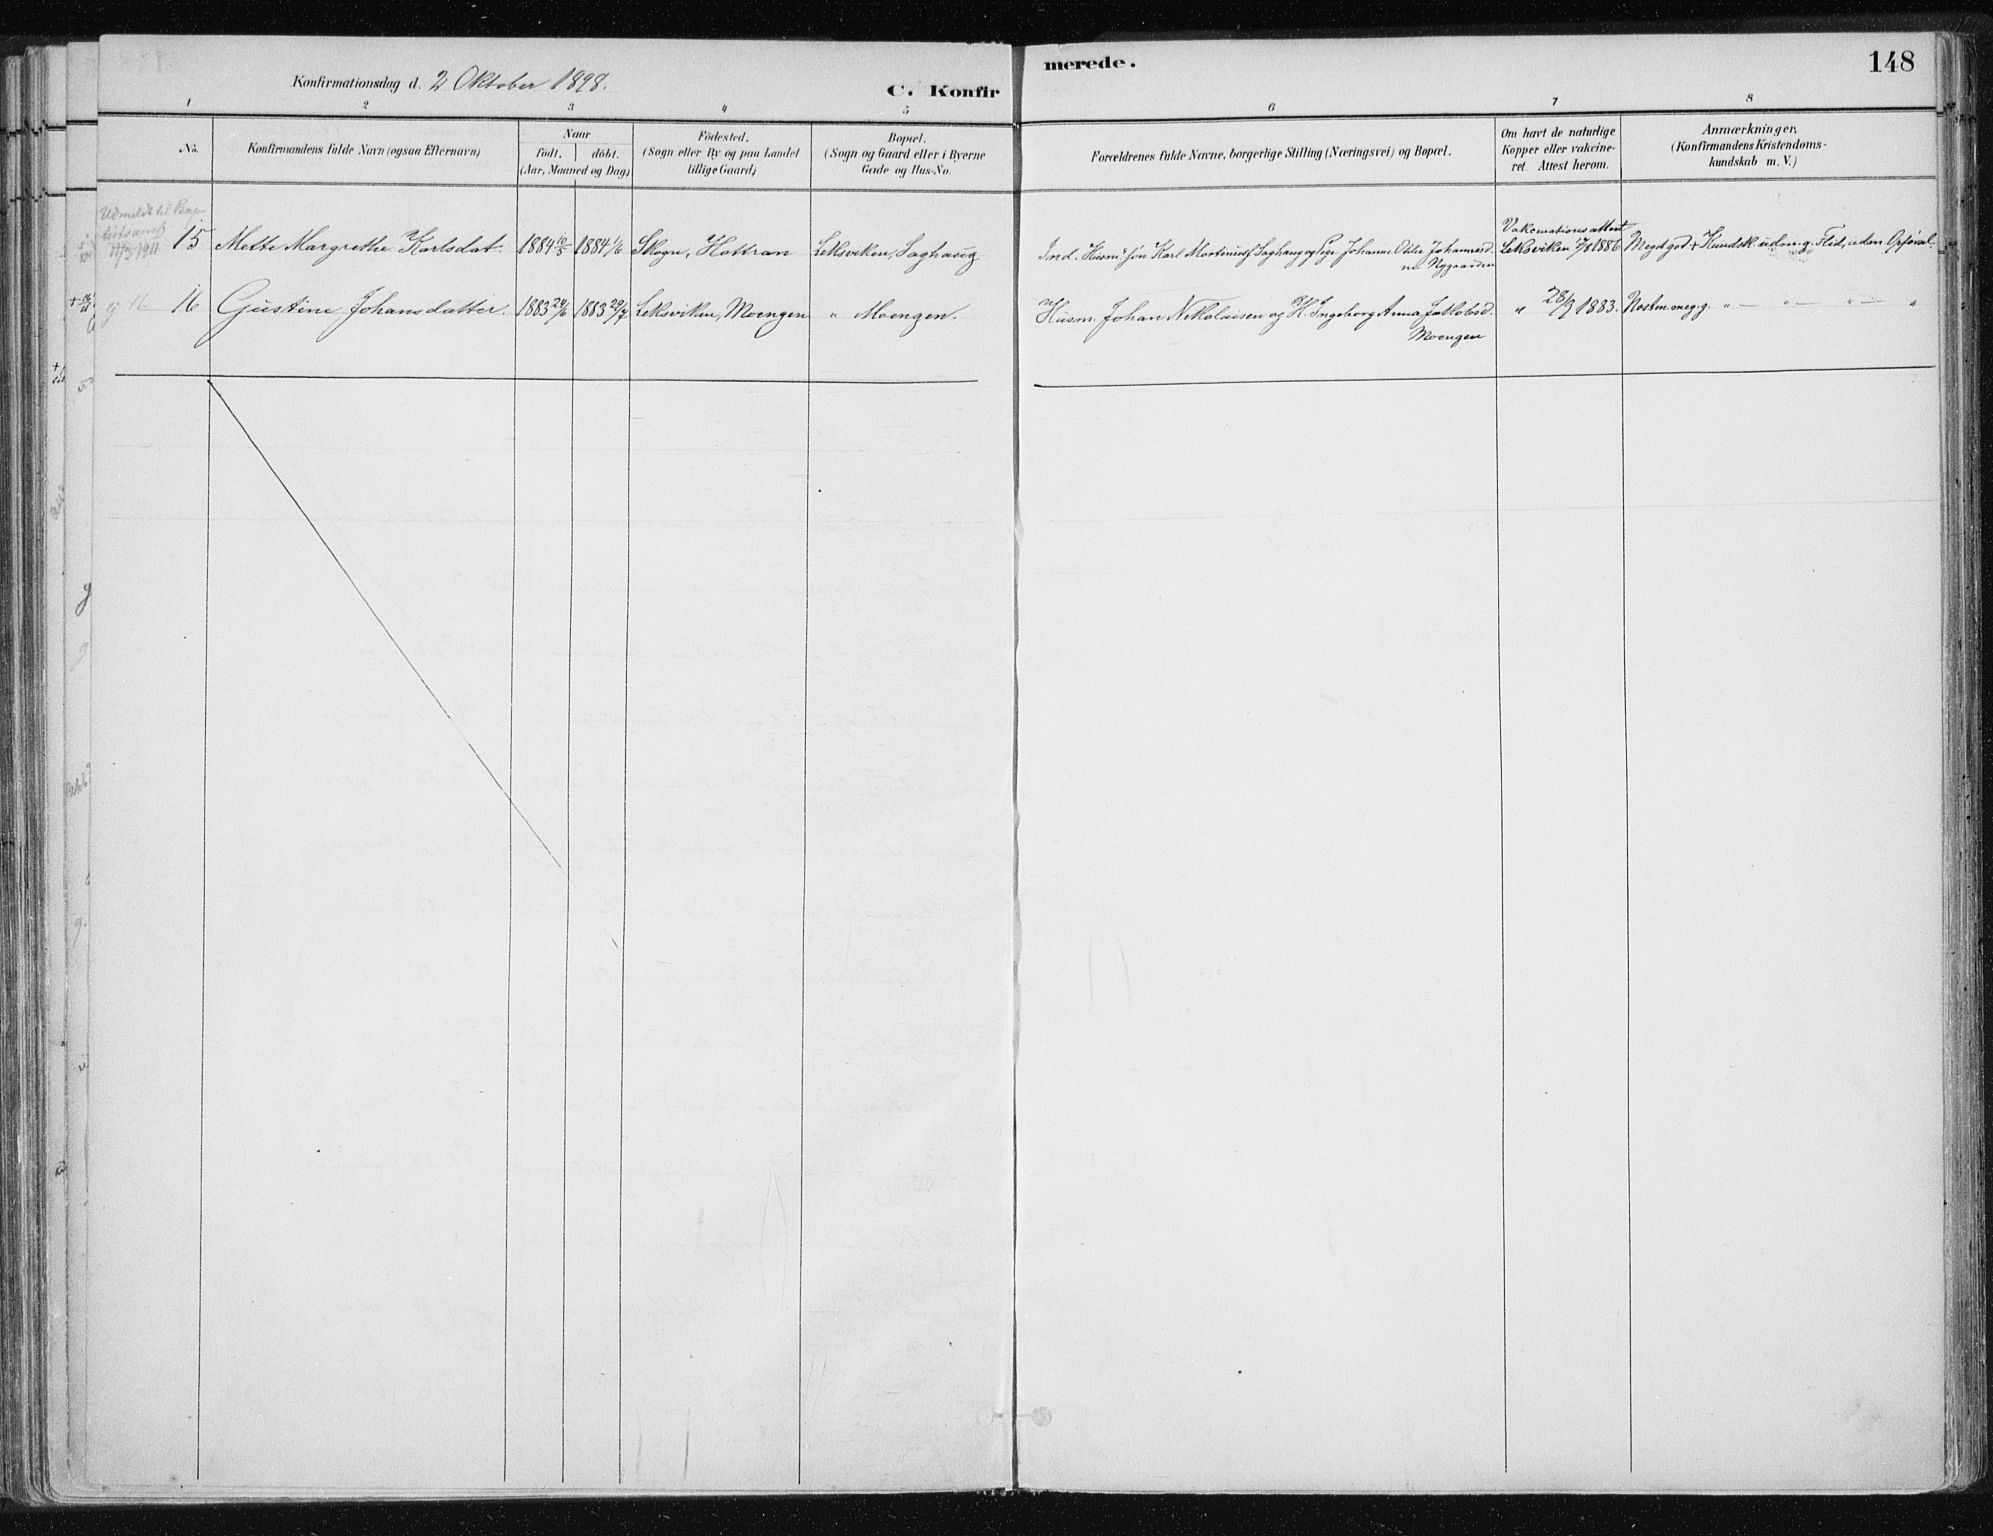 Konfirmationsdag d. 2 Oktober 1898.
C. Konfir
merede.
148
1 2 3 4 5 6 7 8
No.
Konfirmandens fulde Navn (ogsaa Efternavn)
Naar
födt. döbt.
(Aar, Maaned og Dag)
Födested.
(Sogn eller By og paa Landet
tillige Gaard)
Bopæl.
(Sogn og Gaard eller i Byerne
Gade og Hus-No.
Forældrenes fulde Navne, borgerlige Stilling (Næringsvei) og Bopæl.
Om havt de naturlige
Kopper eller vakcine-
ret. Attest herom.
Anmærkninger,
(Konfirmandens Kristendoms-
kundskab m. V.)
Udmeldt til Bap-
tistsamf
11/3 1911
15 Mette Margrethe Karlsdat. 1884 10/5 1884 1/6 Skogn, Hottran Leksviken, Saghaug
Ind. Husm. søn Karl Martinius Saghaug og Pige Johanne Otilie Johannesd.
Nygaarden
Vakcinationsattest
Leksviken 1886
Meget god Kundsk. udm. g. Flid, udm. Opførsel.
16 Gustine Johansdatter. 1883 24/6 1883 29/7 Leksviken, Moengen " Moengen.
Husm. Johan Nikolaisen og H. Ingeborg Anna Jakobsd.
Moengen
" 28/9 1883.
Næsten meg. g. " — " — " — "